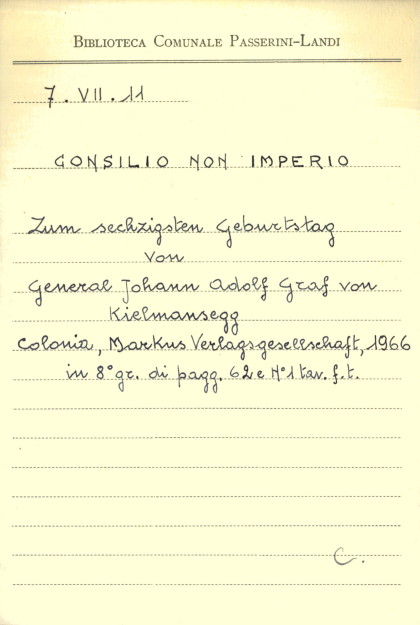 BIBLIOTECA COMUNALE PASSERINI-LANDI
7. VII. 11
CONSILIO NON IMPERIO
Zum sechzigsten Geburtstag
von
General Johann Adolf Graf von
Kielmansegg
Colonia, Markus Verlagsgesellschaft, 1966
in 8° gr. di pagg. 62 e N° 1 tav. f.t.
C.